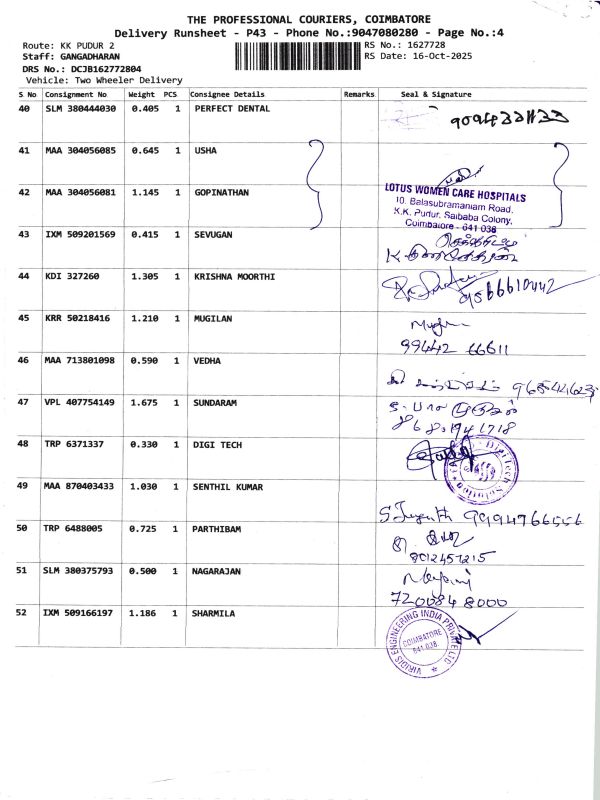 THE PROFESSIONAL COURIERS, COIMBATORE
Delivery Runsheet - P43 - Phone No.:9047080280 - Page No.:4
Route: KK PUDUR 2
RS No.: 1627728
Staff: GANGADHARAN
RS Date: 16-Oct-2025
DRS No.: DCJB162772804
Vehicle: Two Wheeler Delivery
S No Consignment No Weight PCS Consignee Details Remarks Seal & Signature
40 SLM 380444030 0.405 1 PERFECT DENTAL
41 MAA 304056085 0.645 1 USHA
42 MAA 304056081 1.145 1 GOPINATHAN
LOTUS WOMEN CARE HOSPITALS
10. Balasubramaniam Road,
K.K. Pudur, Saibaba Colony,
Coimbatore - 641 038
43 IXM 509201569 0.415 1 SEVUGAN
44 KDI 327260 1.305 1 KRISHNA MOORTHI
9566610442
45 KRR 50218416 1.210 1 MUGILAN
99442 66611
46 MAA 713801098 0.590 1 VEDHA
47 VPL 407754149 1.675 1 SUNDARAM
48 TRP 6371337 0.330 1 DIGI TECH
49 MAA 870403433 1.030 1 SENTHIL KUMAR
9994766556
50 TRP 6488005 0.725 1 PARTHIBAM
8012457215
51 SLM 380375793 0.500 1 NAGARAJAN
7200848000
52 IXM 509166197 1.186 1 SHARMILA
VIRIDIS ENGINEERING INDIA PRIVATE LTD
COIMBATORE
641 038